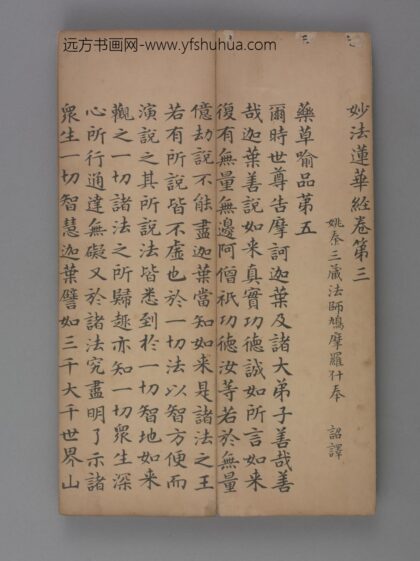 远方书画网-www.yfshuhua.com
妙法蓮華經卷第三
姚秦三藏法師鳩摩羅什奉 詔譯
藥草喻品第五
爾時世尊告摩訶迦葉及諸大弟子善哉善
哉迦葉善說如來真實功德誠如所言如來
復有無量無邊阿僧祇功德汝等若於無量
億劫說不能盡迦葉當知如來是諸法之王
若有所說皆不虛也於一切法以智方便而
演說之其所說法皆悉到於一切智地如來
觀知一切諸法之所歸趣亦知一切眾生深
心所行通達無礙又於諸法究盡明了示諸
眾生一切智慧迦葉譬如三千大千世界山